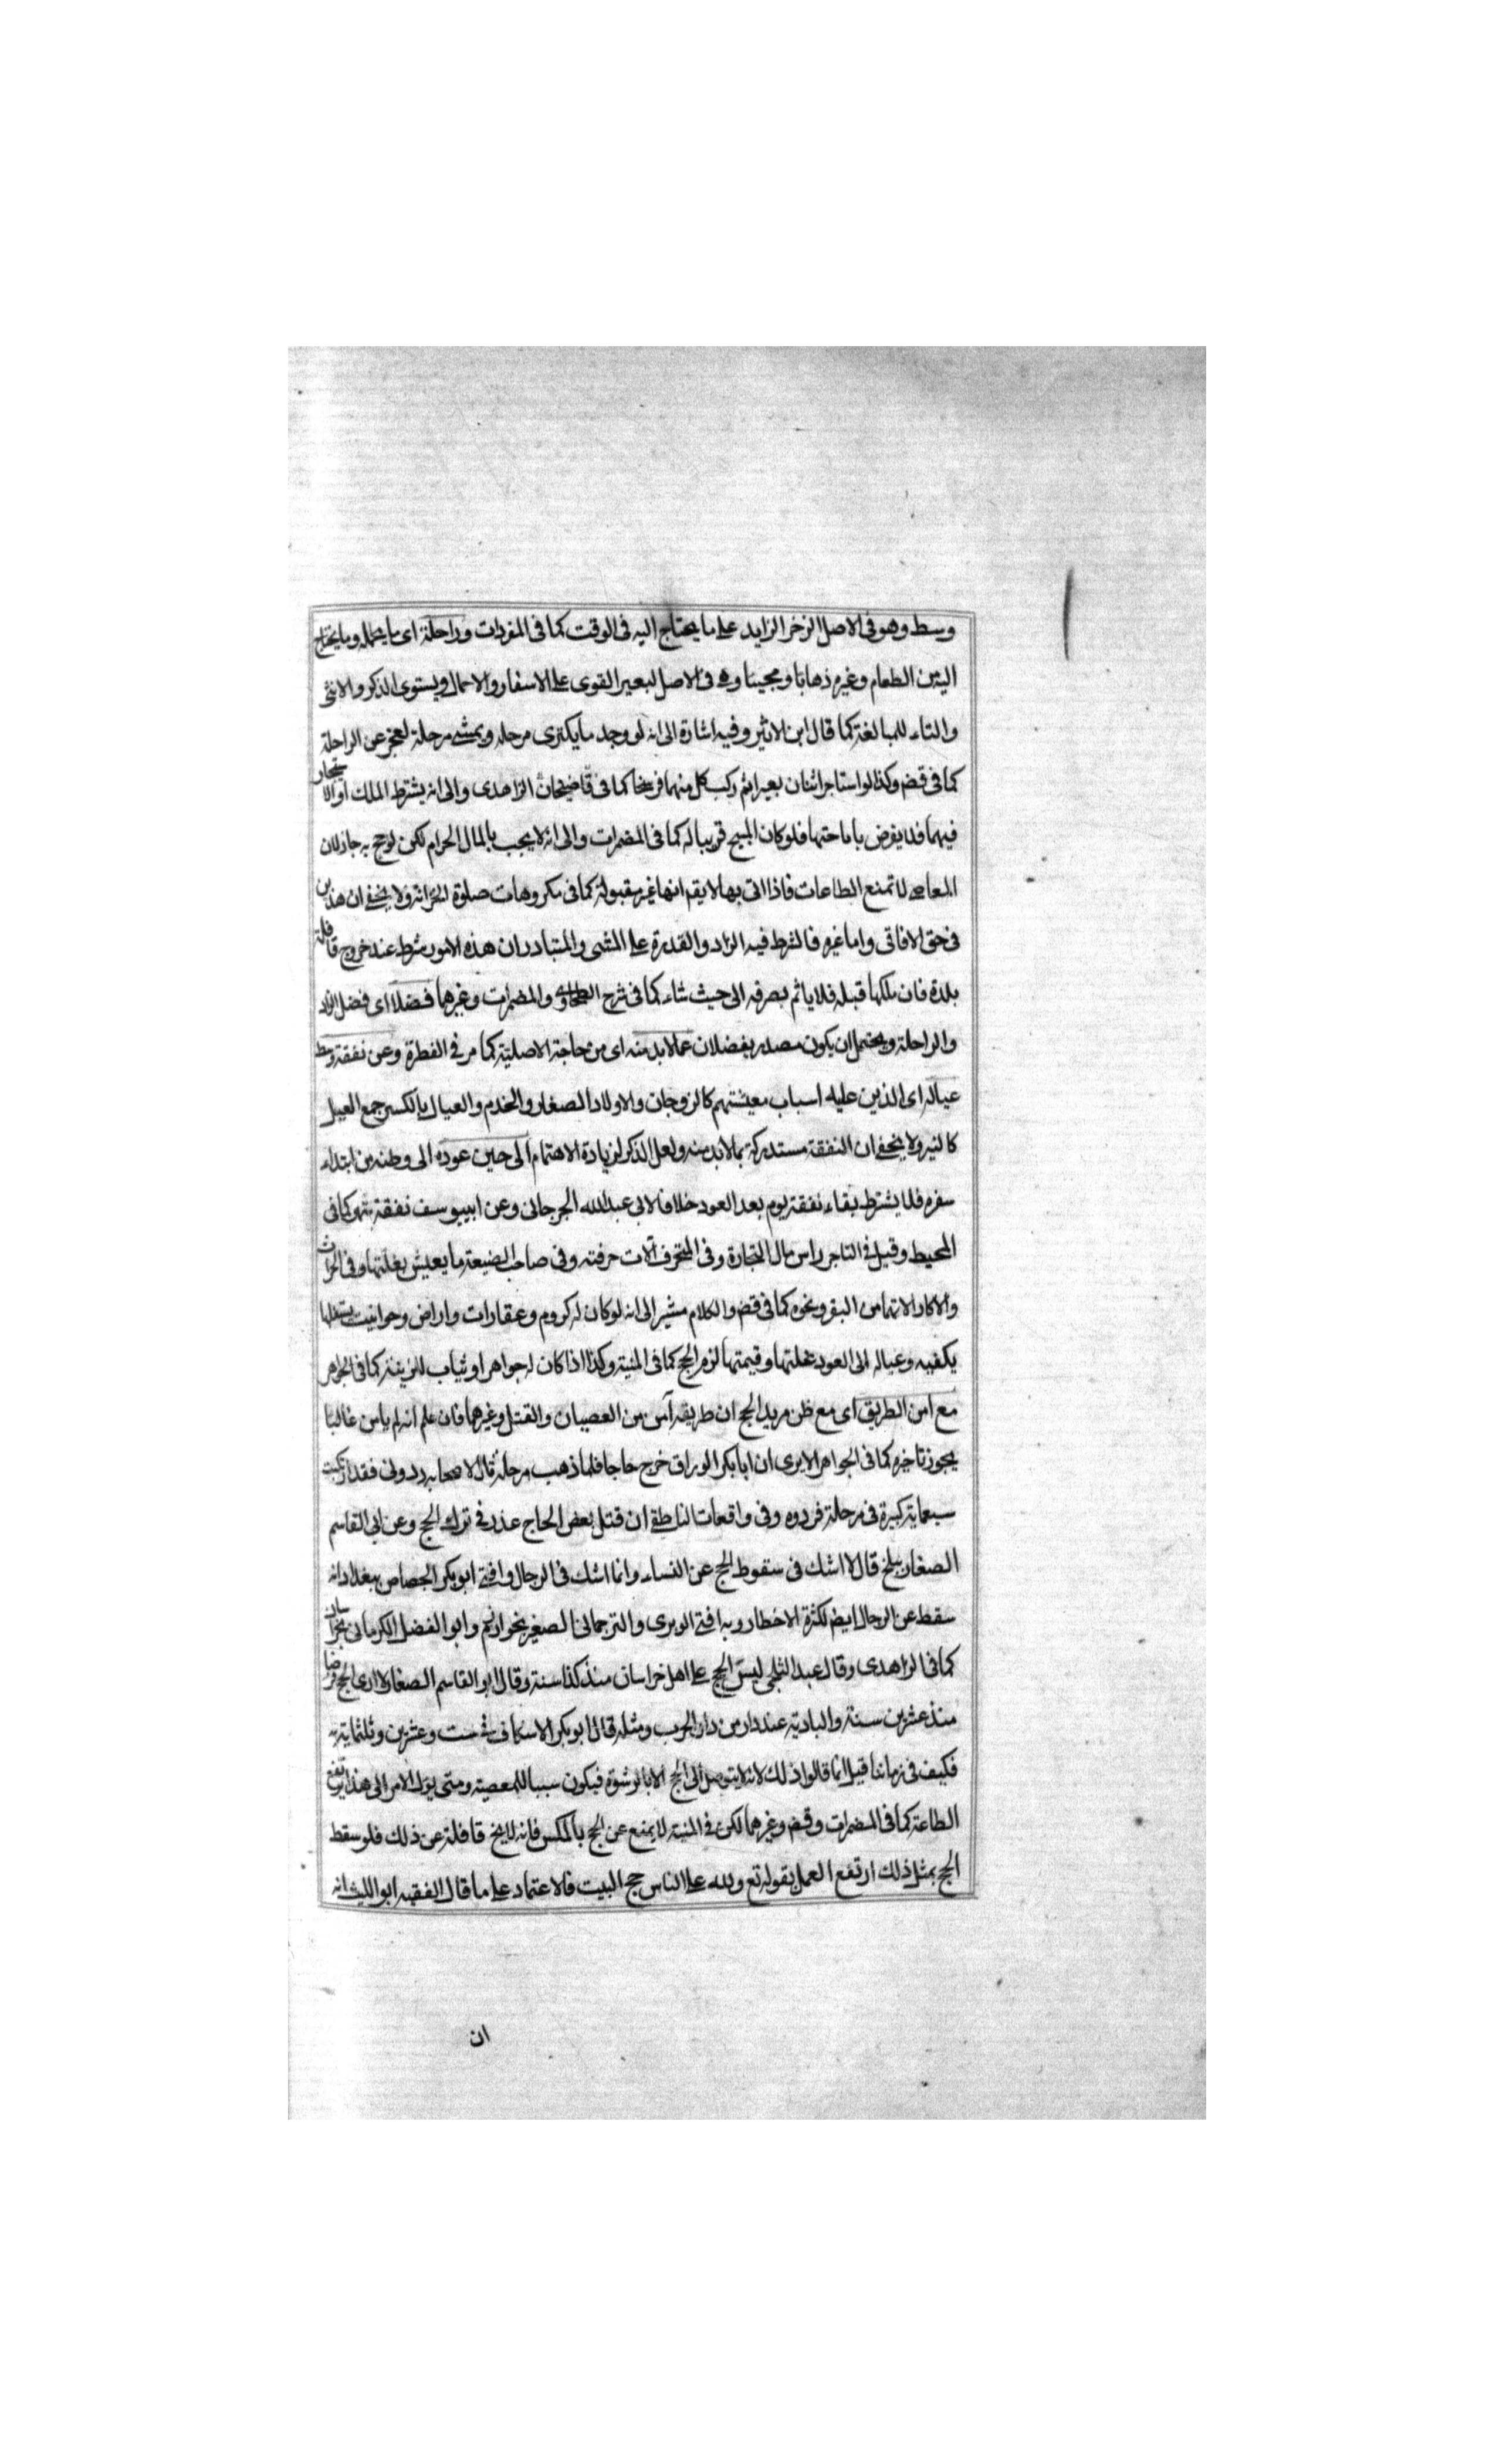 وسط وهو فى الاصل الزخر الزايد على ما يحتاج اليه فى الوقت كما فى المفردات وراحلة اى ما يحمله وما يحتاج
اليه من الطعام وغيره ذهابا ومجيئا وهى فى الاصل لبعير القوى على الاسفار والاحمال ويستوى الذكر والانثى
والتاء للمبالغة كما قال ابن الاثير وفيه اشارة الى انه لو وجد ما يكترى مرحله ويمشى مرحلة لعجز عن الراحلة
كما فى قضـ وكذا لو استاجر اثنان بعيرا ثم ركب كل منهما فرسخا كما فى قاضيخان الزاهدى والى انه يشترط الملك او الاستيجار
فيهما فلا يفرض باباحتهما فلو كان المبيح قريبا له كما فى المضمرات والى انه لا يجب بالمال الحرام لكن لو حج به جاز لان
المعاصى لا تمنع الطاعات فاذا اتى بها لا يقم انها غير مقبولة كما فى مكروهات صلوة الخزانة ولا يخفى ان هذين
فى حق الافاقى واما غيره فالشرط فيه الزاد والقدرة على المشى والمتبادر ان هذه الامور شرط عند خروج قافلة
بلدة فان ملكها قبله فلا ياثم بصرفه الى حيث شاء كما فى شرح الطحاوى والمضمرات وغيرهما فضلا اى فضل الزاد
والراحلة ويحتمل ان يكون مصدر يفضلان عما لا بد منه اى من حاجة الاصلية كما مر فى الفطرة وعن نفقة وسط
عياله اى الذين عليه اسباب معيشتهم كالزوجات والاولاد الصغار والخدم والعيال بالكسر جمع العيل
كالنير ولا يخفى ان النفقة مستدركة بما لا بد منه ولعل الذكر لزيادة الاهتمام الى حين عوده الى وطنه من ابتداء
سفره فلا يشترط بقاء نفقة يوم بعد العود خلافا لابى عبد الله الجرجانى وعن ابيوسف نفقة شهر كما فى
المحيط وقيل فى التاجر راس مال التجارة وفى المحترف آلات حرفته وفى صاحب الضيعة ما يعيش بغلتها وفى الحراث
والاكار الاتهما من البقر ونحوه كما فى قضـ والكلام مشير الى انه لو كان له كروم وعقارات واراض وحوانيت يستغلها
يكفيه وعياله الى العود غلتها وقيمتها لزم الحج كما فى المنية وكذا اذا كان له جواهر او ثياب للزينة كما فى الجواهر
مع امن الطريق اى مع ظن مريد الحج ان طريقه آمن من العصيان والقتل وغيرهما فان علم انه لم يامن غالبا
يجوز تاخيره كما فى الجواهر الا يرى ان ابا بكر الوراق خرج حاجا فلما ذهب مرحلة قال لاصحابه ردونى فقد ارتكبت
سبعماية كبيرة فى مرحلة فردوه وفى واقعات الناطفى ان قتل بعض الحاج عذر فى ترك الحج وعن ابى القاسم
الصفار ببلخ قال لا اشك فى سقوط الحج عن النساء وانما اشك فى الرجال وافتى ابو بكر الجصاص ببغداد انه
سقط عن الرجال ايضـ لكثرة الاخطار وبه افتى الوبرى والترجمانى الصغير بخوارزم وابو الفضل الكرمانى بخراسان
كما فى الزاهدى وقال عبد الثلجى ليس الحج على اهل خراسان منذ كذا سنة وقال ابو القاسم الصفار لا ارى الحج فرضا
منذ عشرين سنة والبادية عند دار من دار الحرب ومثله قال ابو بكر الاسكاف فى ست وعشرين وثلثماية
فكيف فى زماننا قيل انما قالوا ذلك لانه لا يتوصل الى الحج الا بالرشوة فيكون سببا للمعصية ومتى يؤل الامر الى هذا يرتفع
الطاعة كما فى المضمرات وقضـ وغيرهما لكن فى المنية لا يمنع عن الحج بالمكس فانه لا يخ قافلة عن ذلك فلو سقط
الحج بمثل ذلك ارتفع العمل بقوله تع ولله على الناس حج البيت فالاعتماد على ما قال الفقيه ابو الليث انه
ان